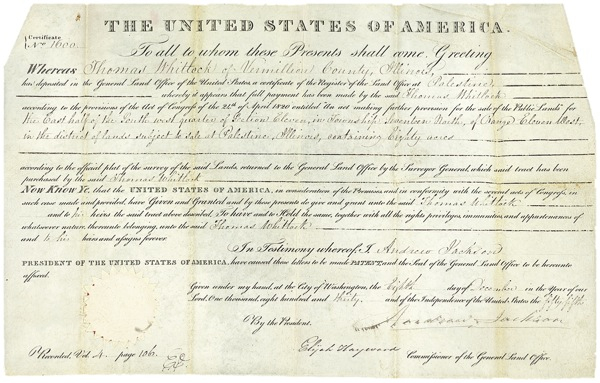 THE UNITED STATES OF AMERICA.
Certificate
No. 1600
To all to whom these Presents shall come, Greeting
Whereas Thomas Whitlock of Vermillion County, Illinois,
has deposited in the General Land Office of the United States, a certificate of the Register of the Land Office at Palestine
whereby it appears that full payment has been made by the said Thomas Whitlock
according to the provisions of the Act of Congress of the 24th of April 1820 entitled "An act making further provision for the sale of the Public Lands" for
the East half of the South west quarter of Section Eleven, in Township Seventeen North, of Range Eleven West,
in the district of lands subject to sale at Palestine, Illinois, containing Eighty acres
according to the official plat of the survey of the said Lands, returned to the General Land Office by the Surveyor General, which said tract has been
purchased by the said Thomas Whitlock
Now Know Ye, that the UNITED STATES OF AMERICA, in consideration of the Premises and in conformity with the several acts of Congress, in
such case made and provided, have Given and Granted and by these presents do give and grant unto the said Thomas Whitlock
and to his heirs the said tract above described. To have and to Hold the same, together with all the rights, privileges, immunities, and appurtenances of
whatsoever nature, thereunto belonging, unto the said Thomas Whitlock
and to his heirs and assigns forever.
In Testimony whereof, I, Andrew Jackson
PRESIDENT OF THE UNITED STATES OF AMERICA, have caused these letters to be made PATENT, and the Seal of the General Land Office to be hereunto
affixed.
Given under my hand, at the City of Washington, the Fifth day of December in the Year of our
Lord, One thousand, eight hundred and thirty and of the Independence of the United States the fifty fifth
By the President,
Andrew Jackson
Elijah Hayward Commissioner of the General Land Office.
Recorded, Vol. 4 page 106